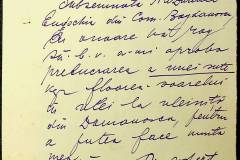 Subsemnata
Eugochie din Com. Bogdanova
Cu onoare vă rog
să b. v. a-mi aproba
prelucrarea a unei sute
kgr floarea-soarelui
în ulei la uleinița
din Damanovca, pentru
a putea face nunta